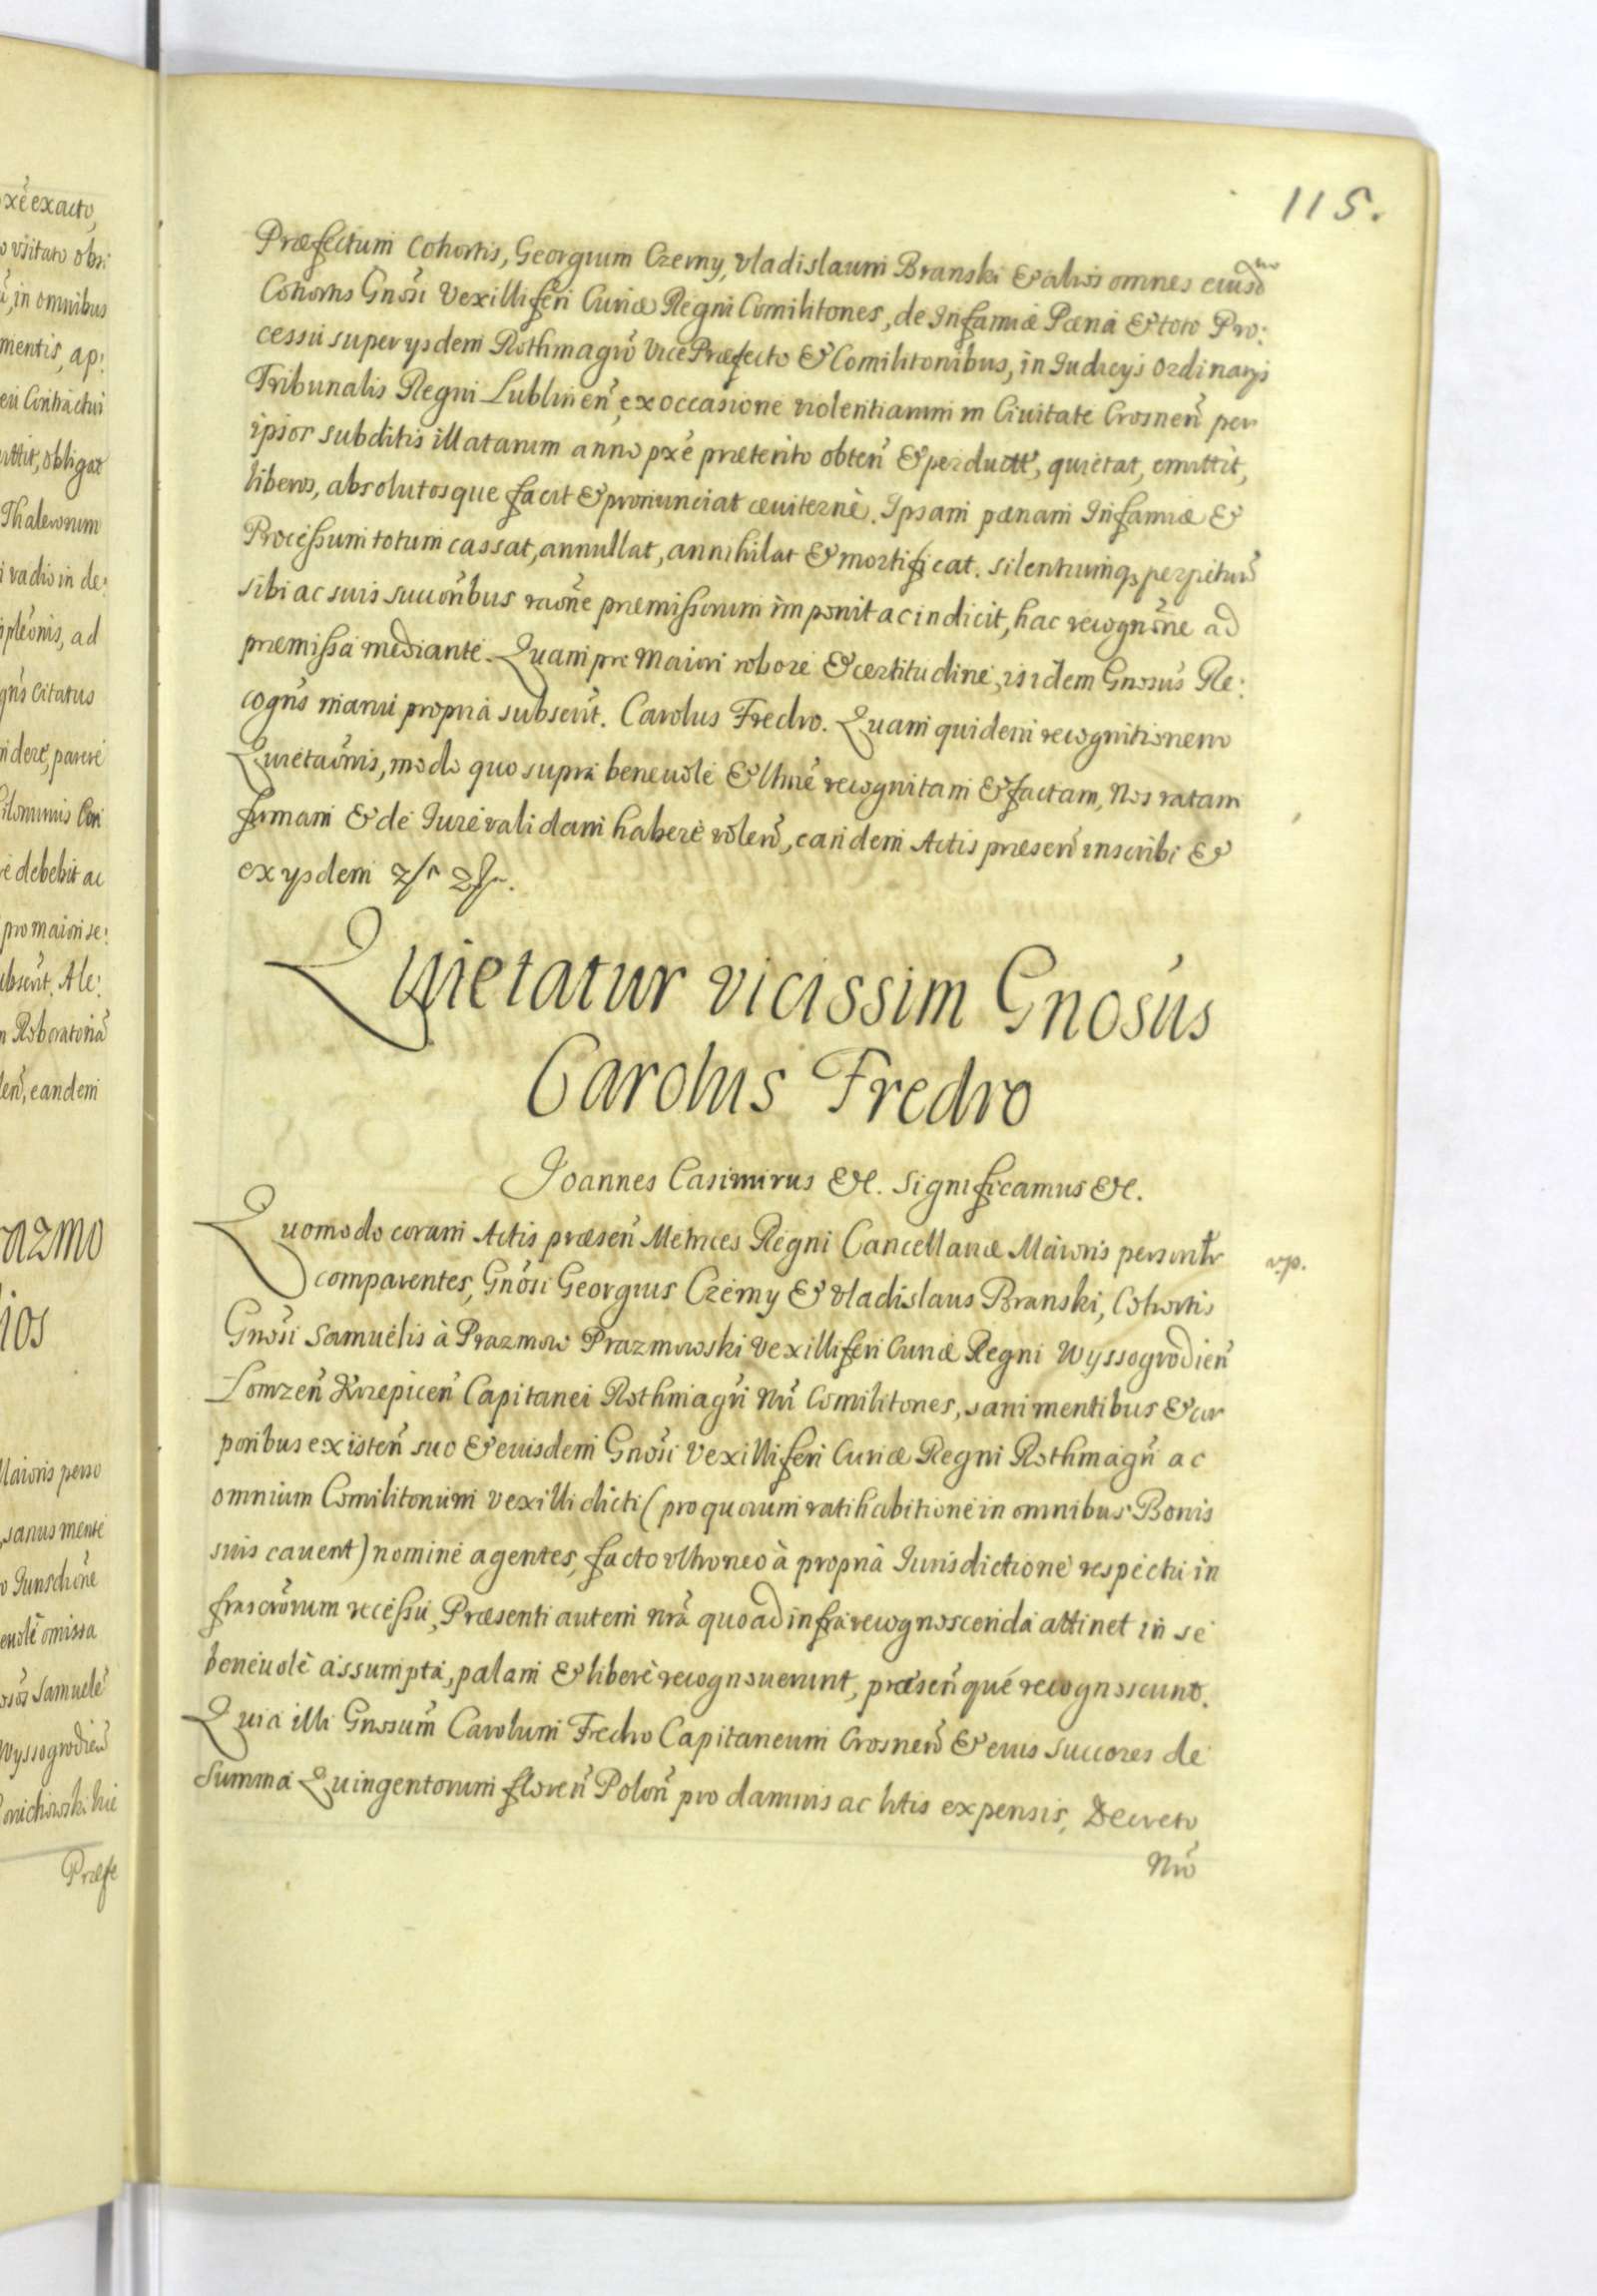 115.
Præfectum Cohortis, Georgium Czerny, Vladislaum Branski & alios omnes eiusd
Cohortis Gnosi Vexilliferi Curiæ Regni Comilitones, de Infamiæ Pæna & toto Pro:
cessu super ysdem Rothmagrō Vice Præfecto & Comilitonibus, in Iudicÿs ordinarÿs
Tribunalis Regni Lublineñ, ex occasione violentiarum in Ciuitate Crosneñ per
ipsor subditis illatarum anno pxē præterito obteñ & perductt, quietat, emittit,
liberos, absolutosque facit & pronunciat æuiternè. Ipsam pænam Infamiæ &
Processum totum cassat, annullat, annihilat & mortificat. silentiumq3 perpetuū
sibi ac suis succōribus raōne præmissorum imponit ac indicit, hac recognōne ad
præmissa mediante. Quam pro maiori robore & certitudine, isidem Gnosus Re:
cogñs manu propria subscrit. Carolus Fredro. Quam quidem recognitionem
Quietaōnis, modo quo supra beneuole & lhrē recognitam & factam, Nos ratam
firmam & de Iure validam habere voleñ, eandem Actis præseñ inscribi &
ex ysdem
Quietatur vicissim Gnosus
Carolus Fredro
Ioannes Casimirus &c. Significamus &c.
Quomodo coram Actis præseñ Metrices Regni Cancellariæ Maioris personlr
comparentes, Gnosi Georgius Czerny & Vladislaus Branski, Cohortis
Gnosi Samuelis à Prazmow Prazmowski Vexilliferi Curiæ Regni Wyssogrodieñ
Lomzeñ Krzepiceñ Capitanei Rothmagri Nri Comilitones, sani mentibus & cor
poribus existeñ suo & eiusdem Gnosi Vexilliferi Curiæ Regni Rothmagri ac
omnium Comilitonum vexilli dicti (pro quorum ratihabitione in omnibus Bonis
suis cauent) nomine agentes, facto vltroneo à propria Iurisdictione respectu in
frascrōrum recessu, Præsenti autem nrā quoad infra recognoscenda attinet in se
beneuolè assumpta, palam & liberè recognouerunt, præseñque recognoscunt.
Quia illi Gnosum Carolum Fredro Capitaneum Crosneñ & eius succores de
Summa Quingentorum floreñ Poloñ pro damnis ac litis expensis, Decreto
Nrō